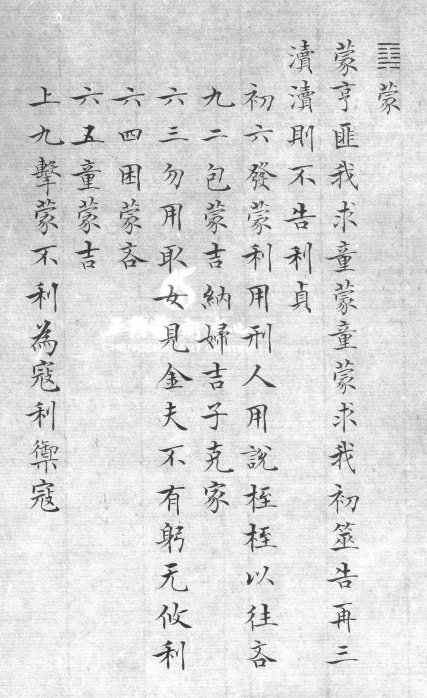 ䷃蒙
蒙亨匪我求童蒙童蒙求我初筮告再三
瀆瀆則不告利貞
初六發蒙利用刑人用說桎梏以往吝
九二包蒙吉納婦吉子克家
六三勿用取女見金夫不有躬无攸利
六四困蒙吝
六五童蒙吉
上九擊蒙不利為寇利禦寇